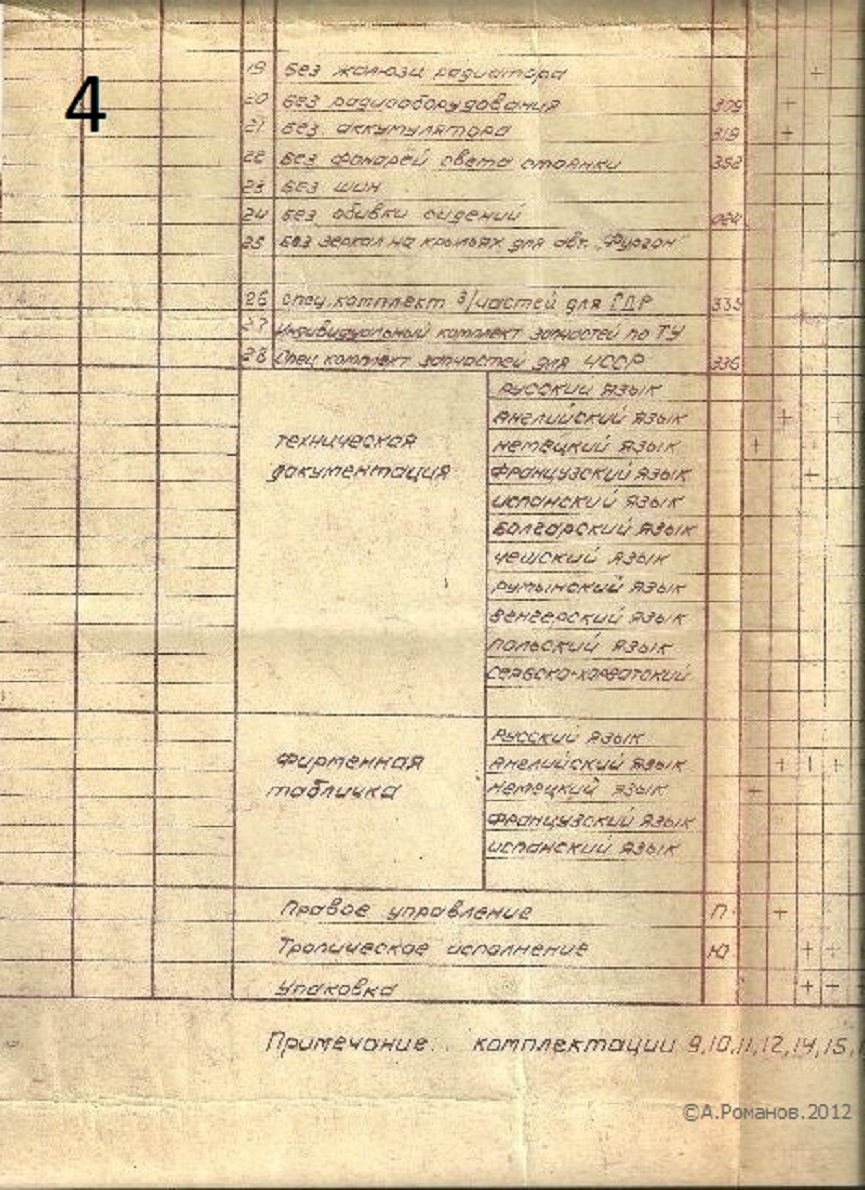 4
19 Без жалюзи радиатора +
20 Без радиооборудования 309 +
21 Без аккумулятора 319 +
22 Без фонарей света стоянки 352
23 Без шин
24 Без обивки сидений 024
25 Без зеркал на крыльях для авт. „Фургон"
26 Спец. комплект з/частей для ГДР 335
27 Индивидуальный комплект запчастей по ТУ
28 Спец комплект запчастей для ЧССР 336
Техническая документация
Русский язык
Английский язык +
Немецкий язык +
Французский язык +
Испанский язык
Болгарский язык
Чешский язык
Румынский язык
Венгерский язык
Польский язык
Сербско-хорватский
Фирменная табличка
Русский язык
Английский язык + + +
Немецкий язык
Французский язык
Испанский язык
Правое управление П +
Тропическое исполнение Ю + +
Упаковка + +
Примечание: комплектации 9,10,11,12,14,15,
©А.Романов.2012